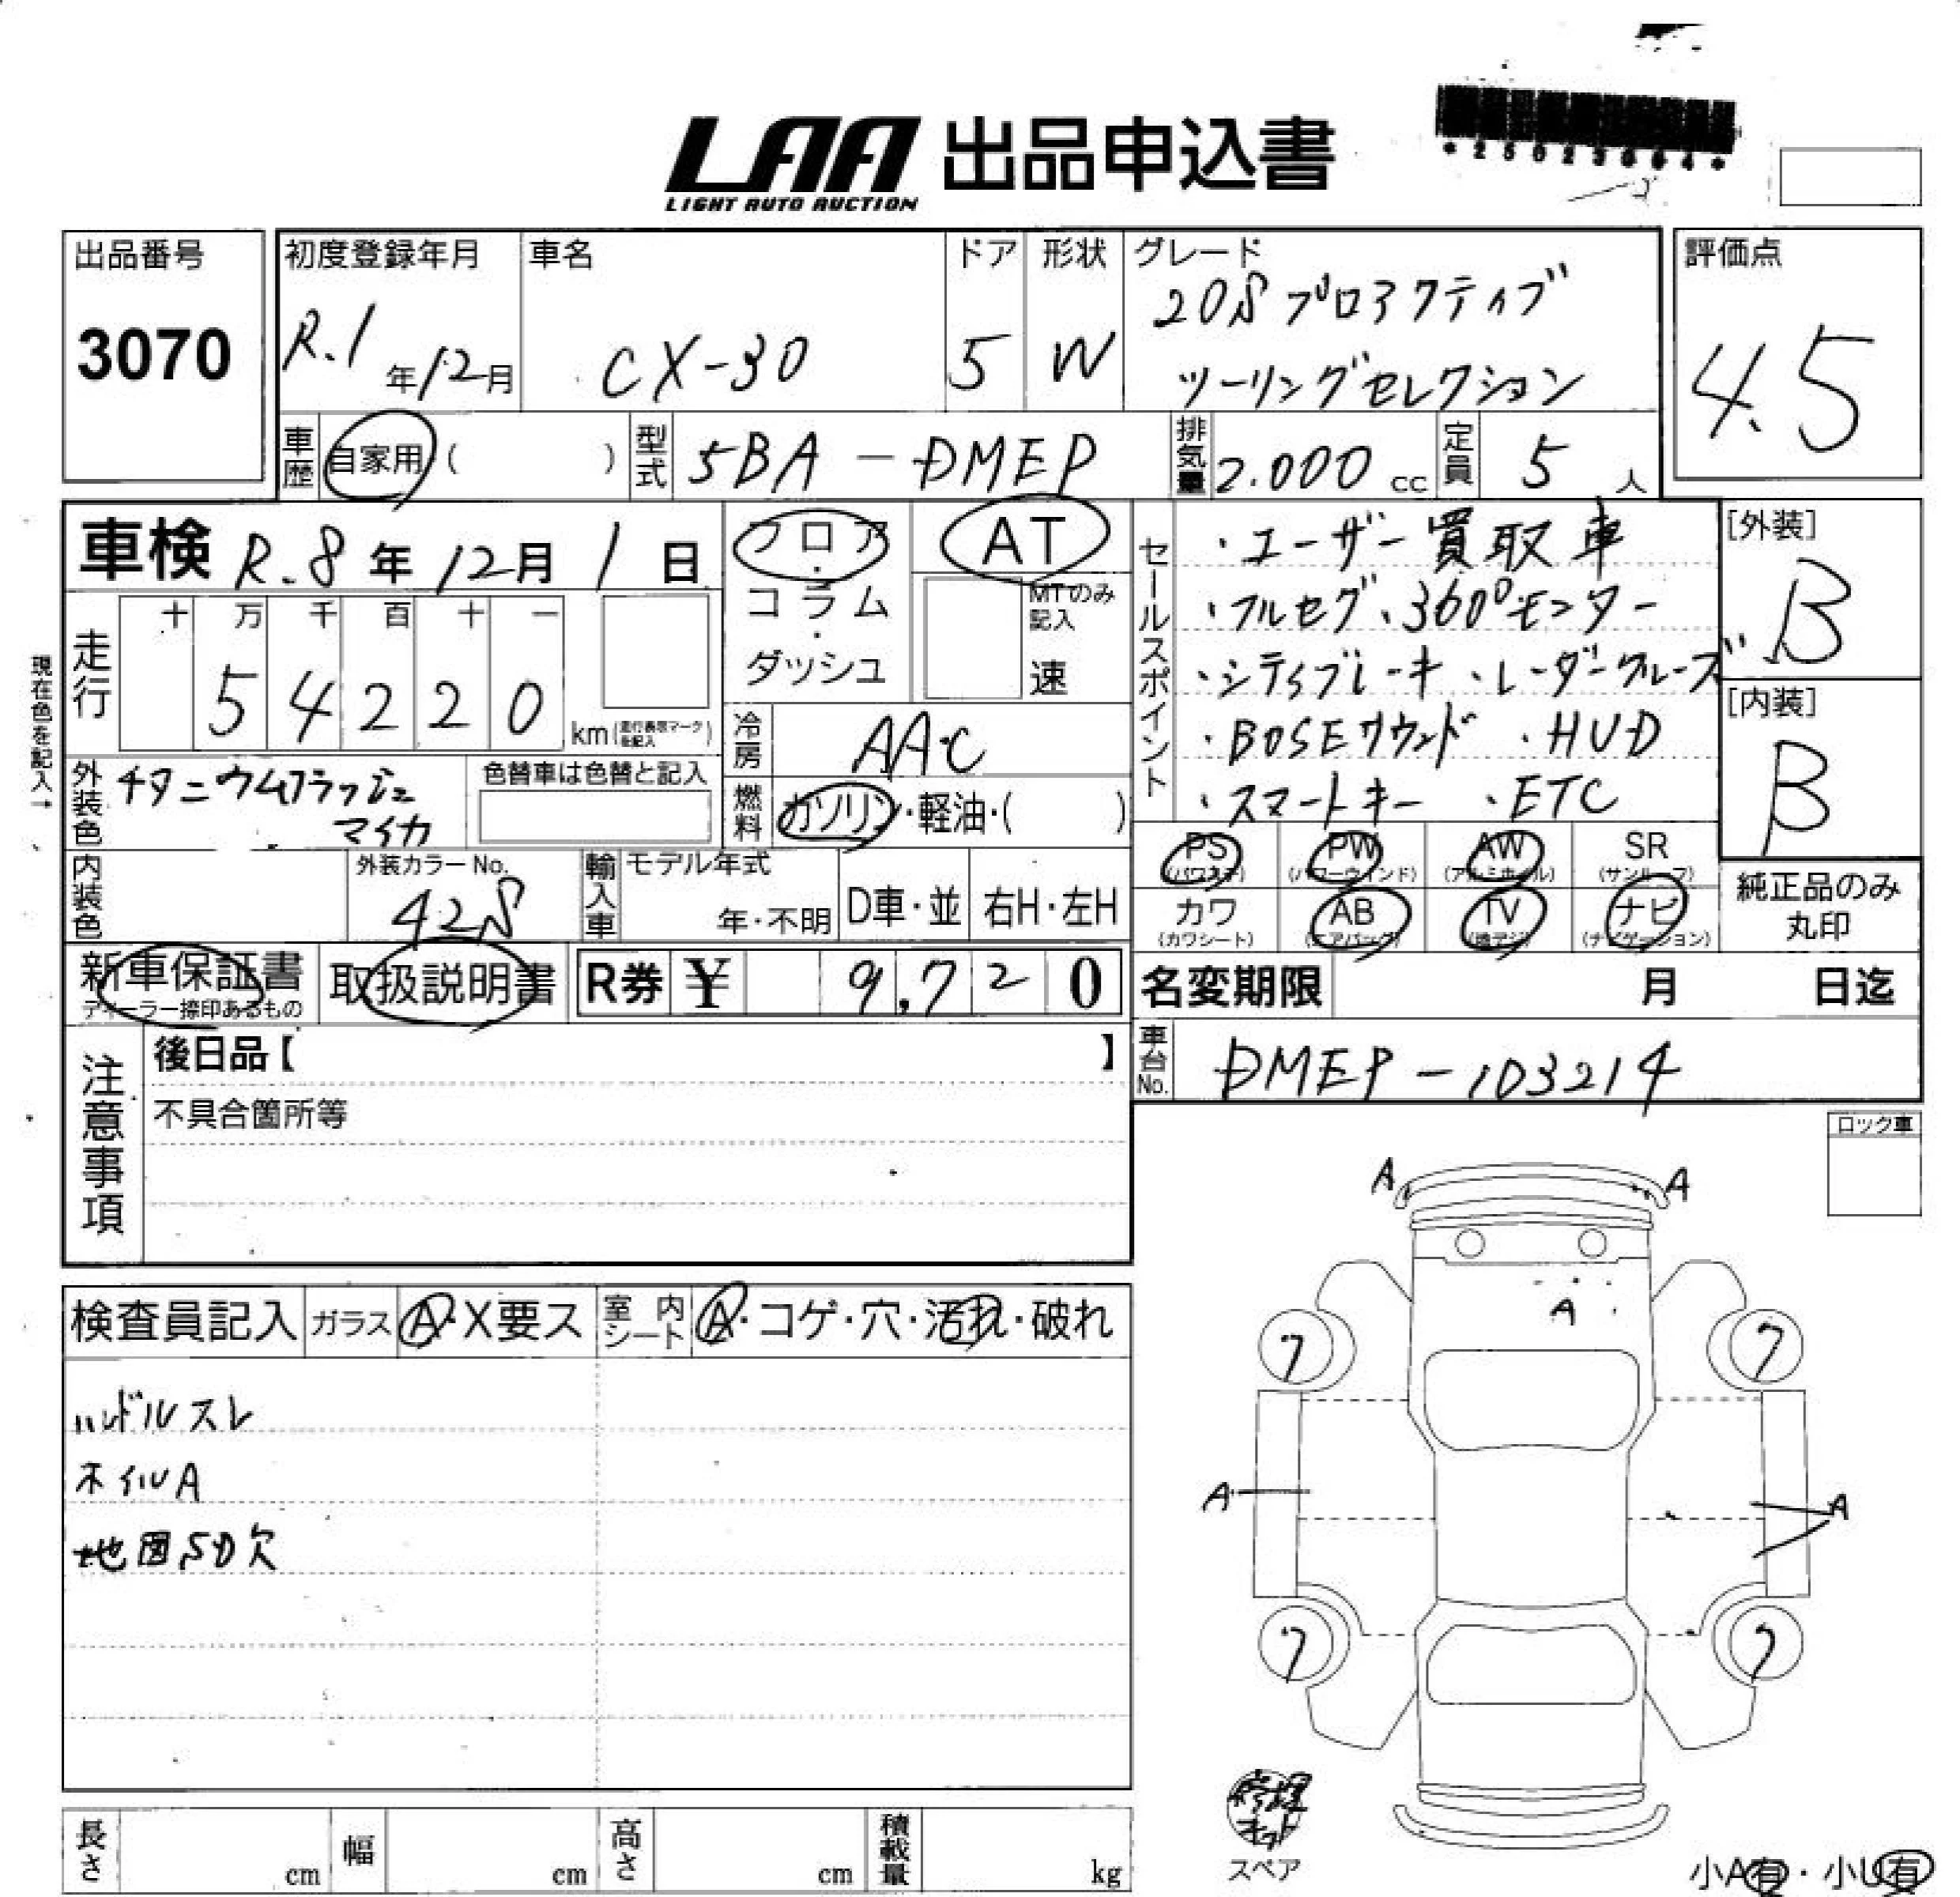 LAA 出品申込書
LIGHT AUTO AUCTION
*25023064*
出品番号
3070
初度登録年月
R.1年12月
車名
CX-30
ドア
5
形状
W
グレード
20S プロアクティブ
ツーリングセレクション
評価点
4.5
車歴 自家用 ( )
型式 5BA-DMEP
排気量 2.000 cc
定員 5 人
車検 R.8年12月1日
フロア・コラム・ダッシュ
AT
MTのみ記入
速
セールスポイント
・ユーザー買取車
・フルセグ、360°モニター
・シティブレーキ ・レーダークルーズ
・BOSEサウンド ・HUD
・スマートキー ・ETC
[外装]
B
[内装]
B
現在色を記入→
走行
十 万 千 百 十 一
5 4 2 2 0
km (走行表示マークを記入)
冷房 AAC
外装色 チタニウムフラッシュ
マイカ
色替車は色替と記入
燃料 ガソリン・軽油・( )
PS (パワステ)
PW (パワーウインド)
AW (アルミホイル)
SR (サンルーフ)
内装色
外装カラーNo.
42S
輸入車
モデル年式
年・不明
D車・並
右H・左H
カワ (カワシート)
AB (エアバッグ)
TV (地デジ)
ナビ (ナビゲーション)
純正品のみ
丸印
新車保証書
ディーラー捺印あるもの
取扱説明書
R券 ¥ 9,720
名変期限 月 日迄
注意事項
後日品【 】
不具合箇所等
車台No. DMEP-103214
ロック車
検査員記入
ガラス A・X要ス
室内シート A・コゲ・穴・汚れ・破れ
ハンドルスレ
ホイルA
地図SD欠
A A
A
7 7
A A
7 7
修理
キット
スペア
長さ cm
幅 cm
高さ cm
積載量 kg
小A有・小U有